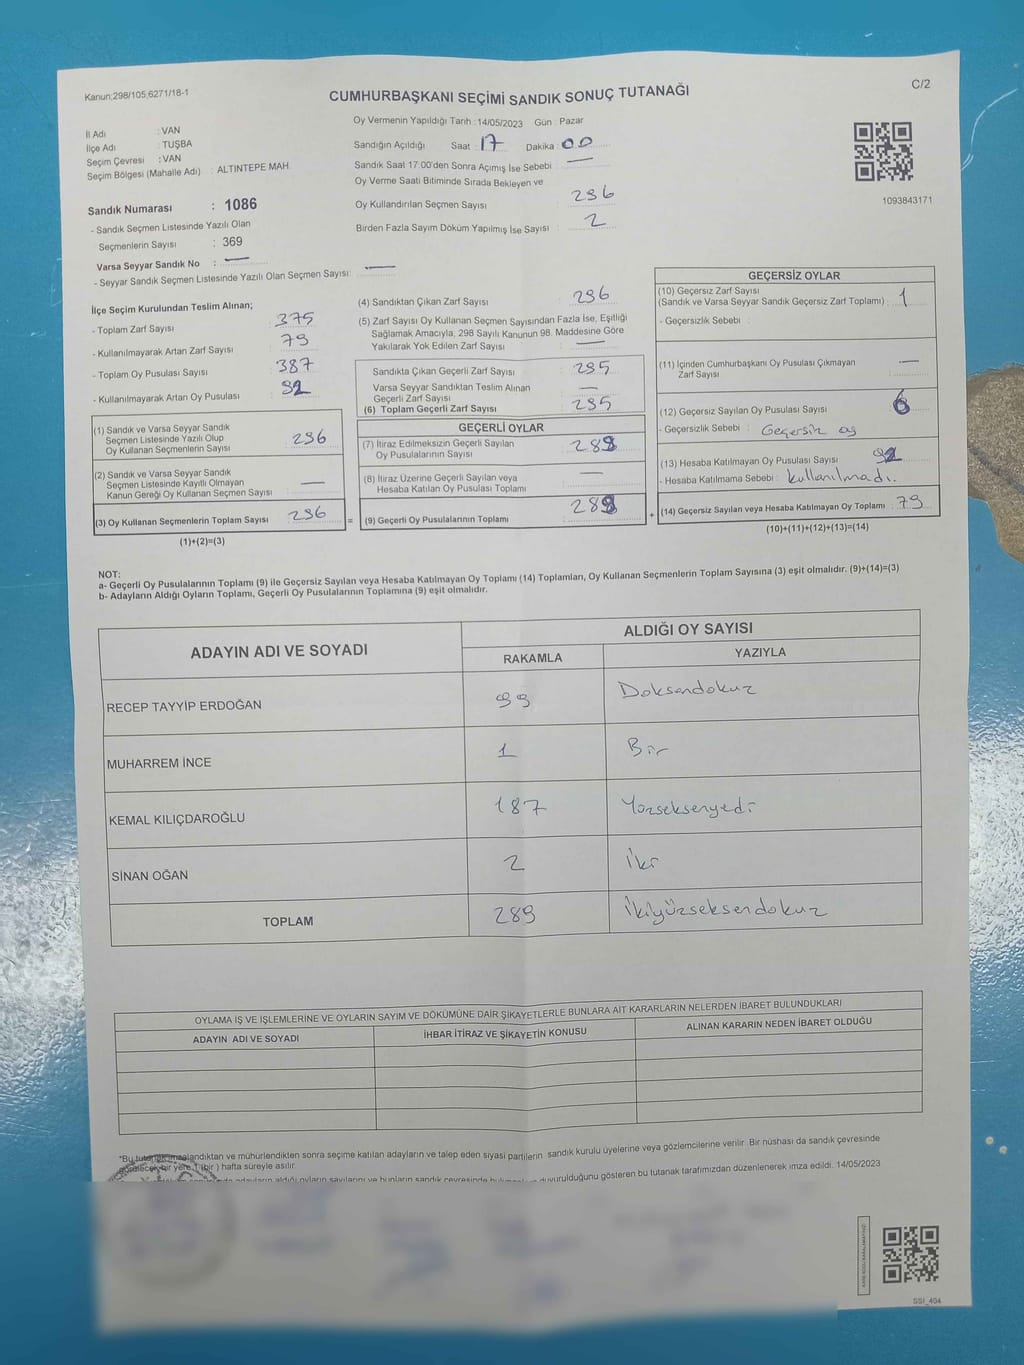 Kanun;298/105,6271/18-1
CUMHURBAŞKANI SEÇİMİ SANDIK SONUÇ TUTANAĞI
C/2
İl Adı : VAN
İlçe Adı : TUŞBA
Seçim Çevresi : VAN
Seçim Bölgesi (Mahalle Adı) : ALTINTEPE MAH.
Sandık Numarası : 1086
- Sandık Seçmen Listesinde Yazılı Olan
Seçmenlerin Sayısı : 369
Varsa Seyyar Sandık No : —
- Seyyar Sandık Seçmen Listesinde Yazılı Olan Seçmen Sayısı: —
Oy Vermenin Yapıldığı Tarih : 14/05/2023 Gün : Pazar
Sandığın Açıldığı Saat : 17 Dakika : 00
Sandık Saat 17:00'den Sonra Açımış İse Sebebi : —
Oy Verme Saati Bitiminde Sırada Bekleyen ve
Oy Kullandırılan Seçmen Sayısı : 296
Birden Fazla Sayım Döküm Yapılmış İse Sayısı : 2
1093843171
İlçe Seçim Kurulundan Teslim Alınan;
- Toplam Zarf Sayısı : 375
- Kullanılmayarak Artan Zarf Sayısı : 79
- Toplam Oy Pusulası Sayısı : 387
- Kullanılmayarak Artan Oy Pusulası :
(1) Sandık ve Varsa Seyyar Sandık
Seçmen Listesinde Yazılı Olup
Oy Kullanan Seçmenlerin Sayısı : 296
(2) Sandık ve Varsa Seyyar Sandık
Seçmen Listesinde Kayıtlı Olmayan
Kanun Gereği Oy Kullanan Seçmen Sayısı : —
(3) Oy Kullanan Seçmenlerin Toplam Sayısı : 296
(1)+(2)=(3)
=
(4) Sandıktan Çıkan Zarf Sayısı : 296
(5) Zarf Sayısı Oy Kullanan Seçmen Sayısından Fazla İse, Eşitliği
Sağlamak Amacıyla, 298 Sayılı Kanunun 98. Maddesine Göre
Yakılarak Yok Edilen Zarf Sayısı : —
Sandıkta Çıkan Geçerli Zarf Sayısı : 295
Varsa Seyyar Sandıktan Teslim Alınan
Geçerli Zarf Sayısı : —
(6) Toplam Geçerli Zarf Sayısı : 295
GEÇERLİ OYLAR
(7) İtiraz Edilmeksizin Geçerli Sayılan
Oy Pusulalarının Sayısı : 289
(8) İtiraz Üzerine Geçerli Sayılan veya
Hesaba Katılan Oy Pusulası Toplamı : —
(9) Geçerli Oy Pusulalarının Toplamı : 289
+
GEÇERSİZ OYLAR
(10) Geçersiz Zarf Sayısı
(Sandık ve Varsa Seyyar Sandık Geçersiz Zarf Toplamı) : 1
- Geçersizlik Sebebi :
(11) İçinden Cumhurbaşkanı Oy Pusulası Çıkmayan
Zarf Sayısı : —
(12) Geçersiz Sayılan Oy Pusulası Sayısı : 6
- Geçersizlik Sebebi : Geçersiz oy
(13) Hesaba Katılmayan Oy Pusulası Sayısı :
- Hesaba Katılmama Sebebi : kullanılmadı.
(14) Geçersiz Sayılan veya Hesaba Katılmayan Oy Toplamı : 79
(10)+(11)+(12)+(13)=(14)
NOT:
a- Geçerli Oy Pusulalarının Toplamı (9) ile Geçersiz Sayılan veya Hesaba Katılmayan Oy Toplamı (14) Toplamları, Oy Kullanan Seçmenlerin Toplam Sayısına (3) eşit olmalıdır. (9)+(14)=(3)
b- Adayların Aldığı Oyların Toplamı, Geçerli Oy Pusulalarının Toplamına (9) eşit olmalıdır.
ADAYIN ADI VE SOYADI
ALDIĞI OY SAYISI
RAKAMLA YAZIYLA
RECEP TAYYİP ERDOĞAN 99 Doksandokuz
MUHARREM İNCE 1 Bir
KEMAL KILIÇDAROĞLU 187 Yüzseksenyedi
SİNAN OĞAN 2 İki
TOPLAM 289 İkiyüzseksendokuz
OYLAMA İŞ VE İŞLEMLERİNE VE OYLARIN SAYIM VE DÖKÜMÜNE DAİR ŞİKAYETLERLE BUNLARA AİT KARARLARIN NELERDEN İBARET BULUNDUKLARI
ADAYIN ADI VE SOYADI İHBAR İTİRAZ VE ŞİKAYETİN KONUSU ALINAN KARARIN NEDEN İBARET OLDUĞU
*Bu tutanak imzalandıktan ve mühürlendikten sonra seçime katılan adayların ve talep eden siyasi partilerin sandık kurulu üyelerine veya gözlemcilerine verilir .Bir nüshası da sandık çevresinde
görülecek bir yere 1 (bir ) hafta süreyle asılır.
adayların aldığı oyların sayılarını ve bunların sandık çevresinde duyurulduğunu gösteren bu tutanak tarafımızdan düzenlenerek imza edildi. 14/05/2023
SSI_404